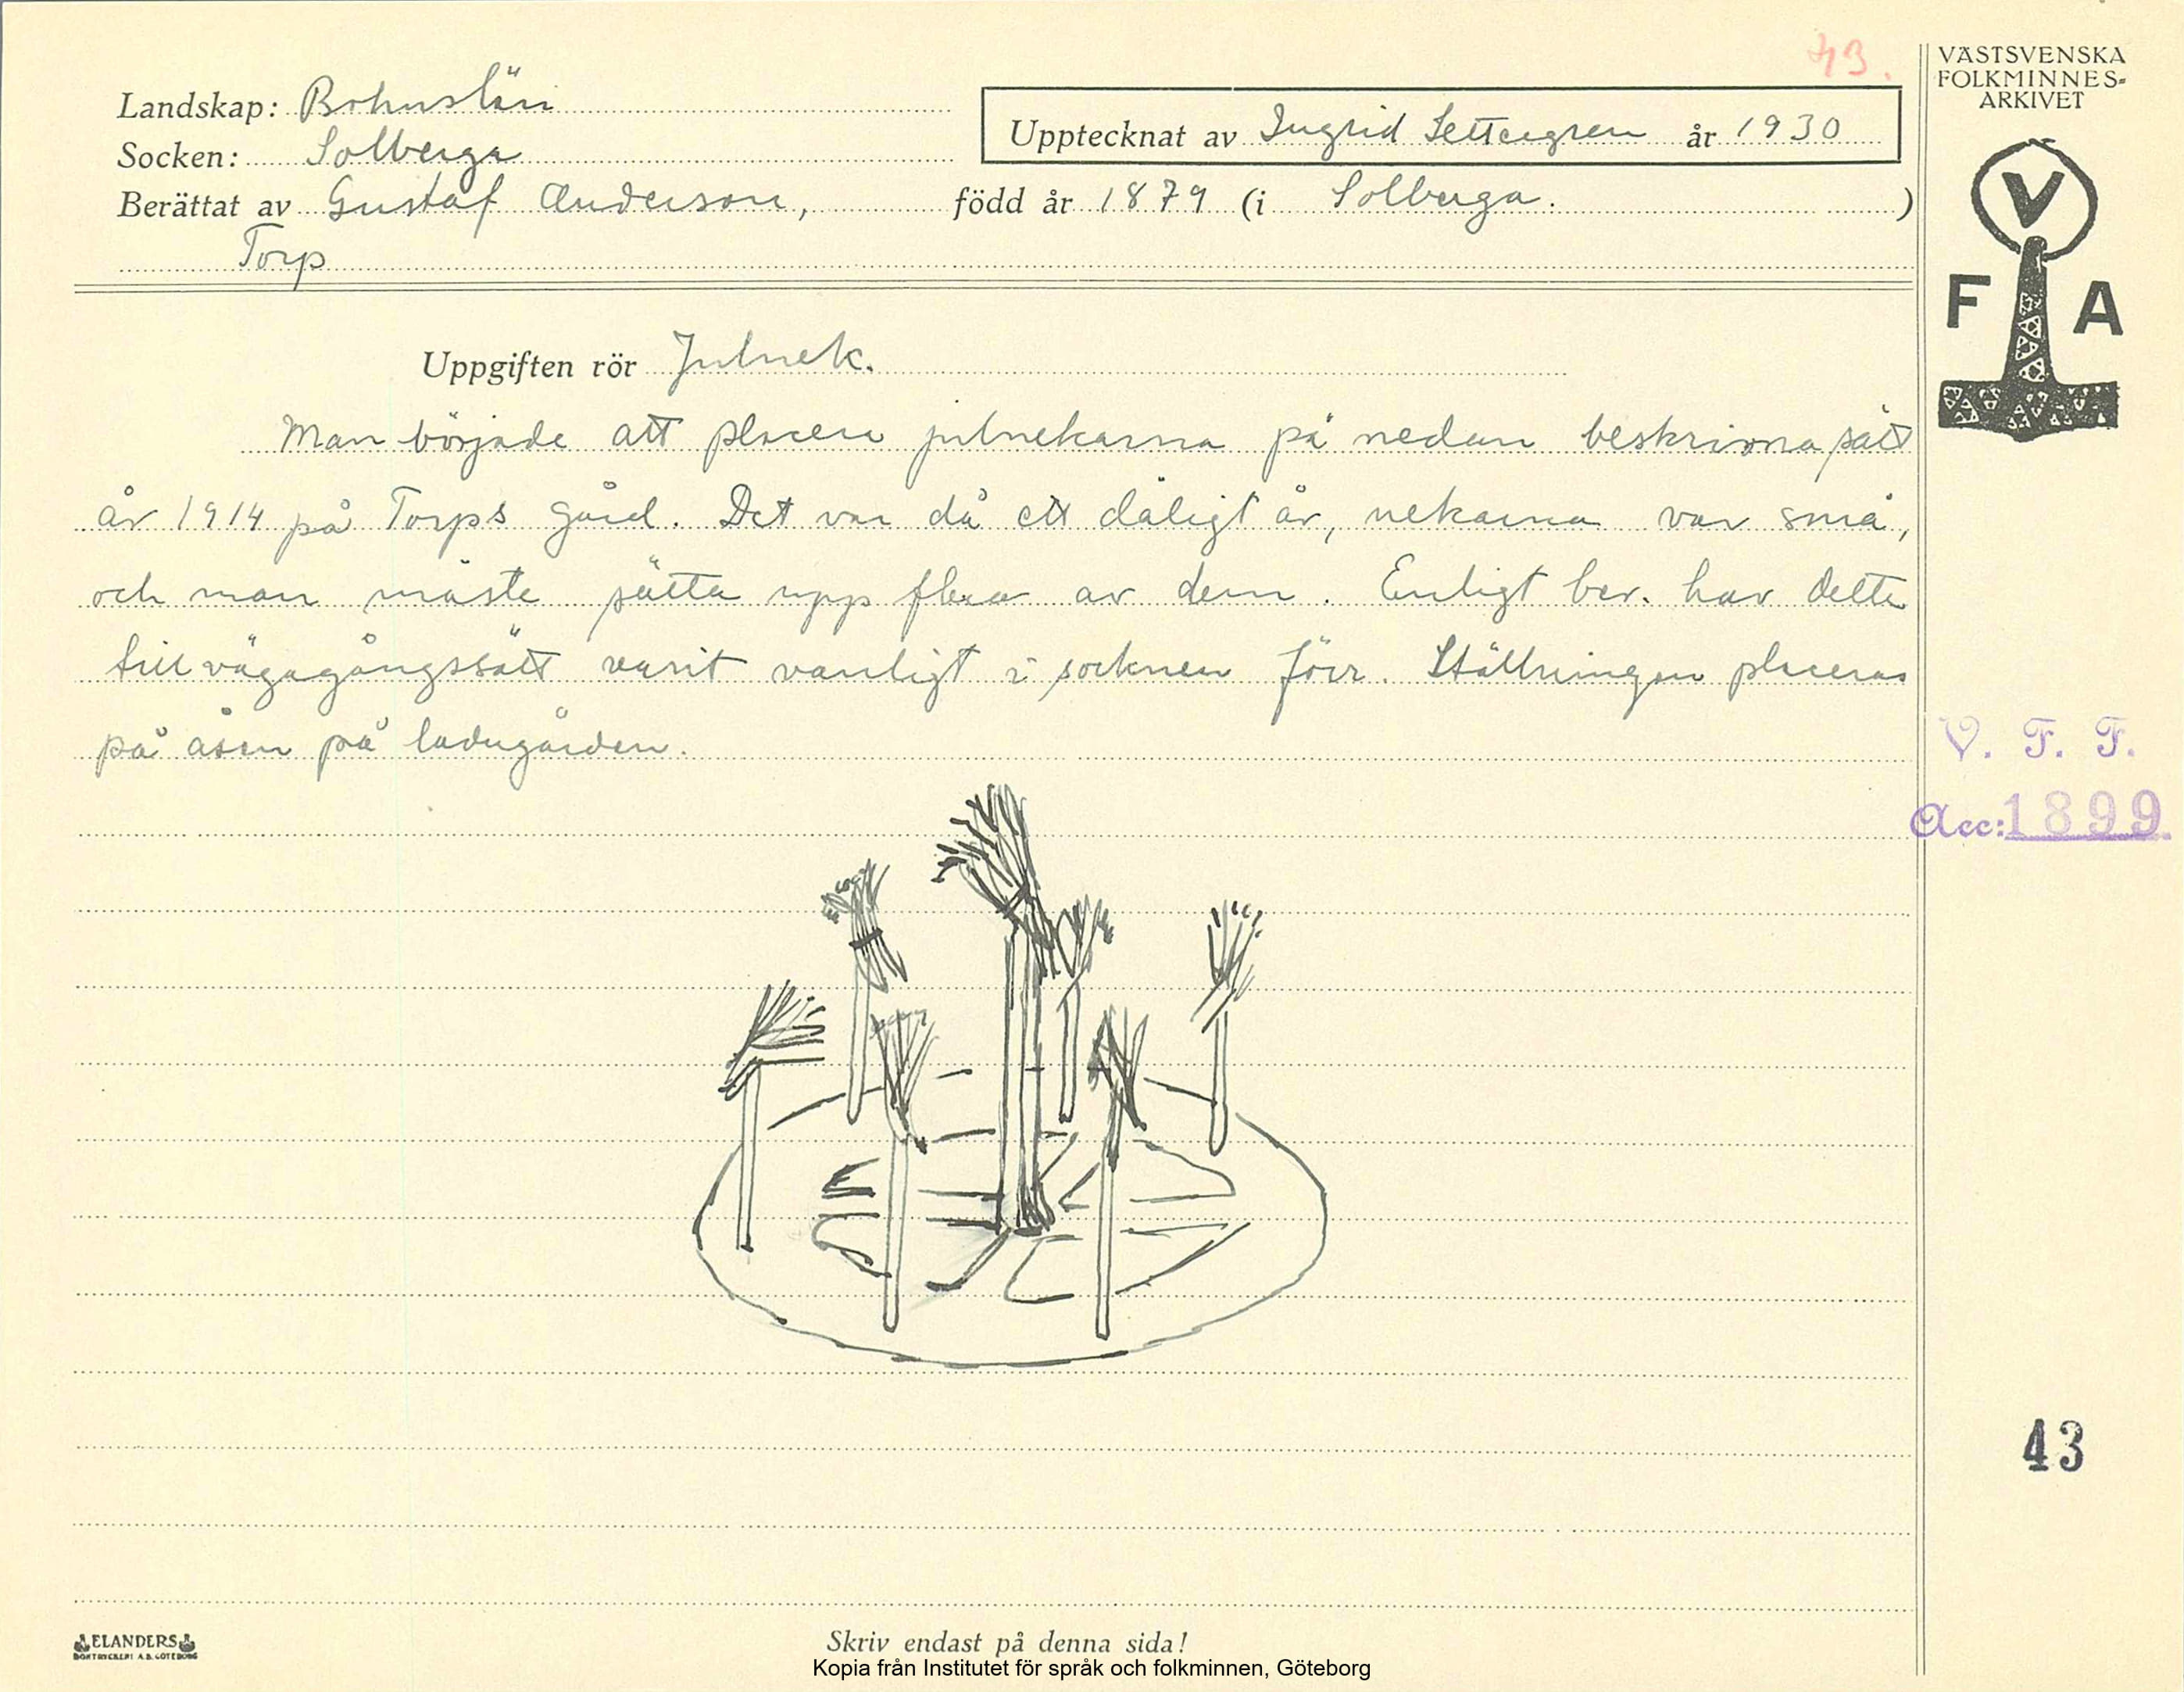 43.
VÄSTSVENSKA
FOLKMINNES-
ARKIVET
Landskap: Bohuslän
Socken: Solberga
Upptecknat av Ingrid Settergren år 1930
Berättat av Gustaf Anderson, född år 1879 (i Solberga.)
Torp
V
F A
Uppgiften rör Julnek.
Man började att placera julnekarna på nedan beskrivna sätt
år 1914 på Torps gård. Det var då ett dåligt år, nekarna var små,
och man måste sätta upp flera av dem. Enligt ber. har detta
tillvägagångssätt varit vanligt i socknen förr. Ställningen placeras
på åsen på ladugården.
V. F. F.
Acc: 1899.
43
ELANDERS
BOKTRYCKERI A.B. GÖTEBORG
Skriv endast på denna sida!
Kopia från Institutet för språk och folkminnen, Göteborg